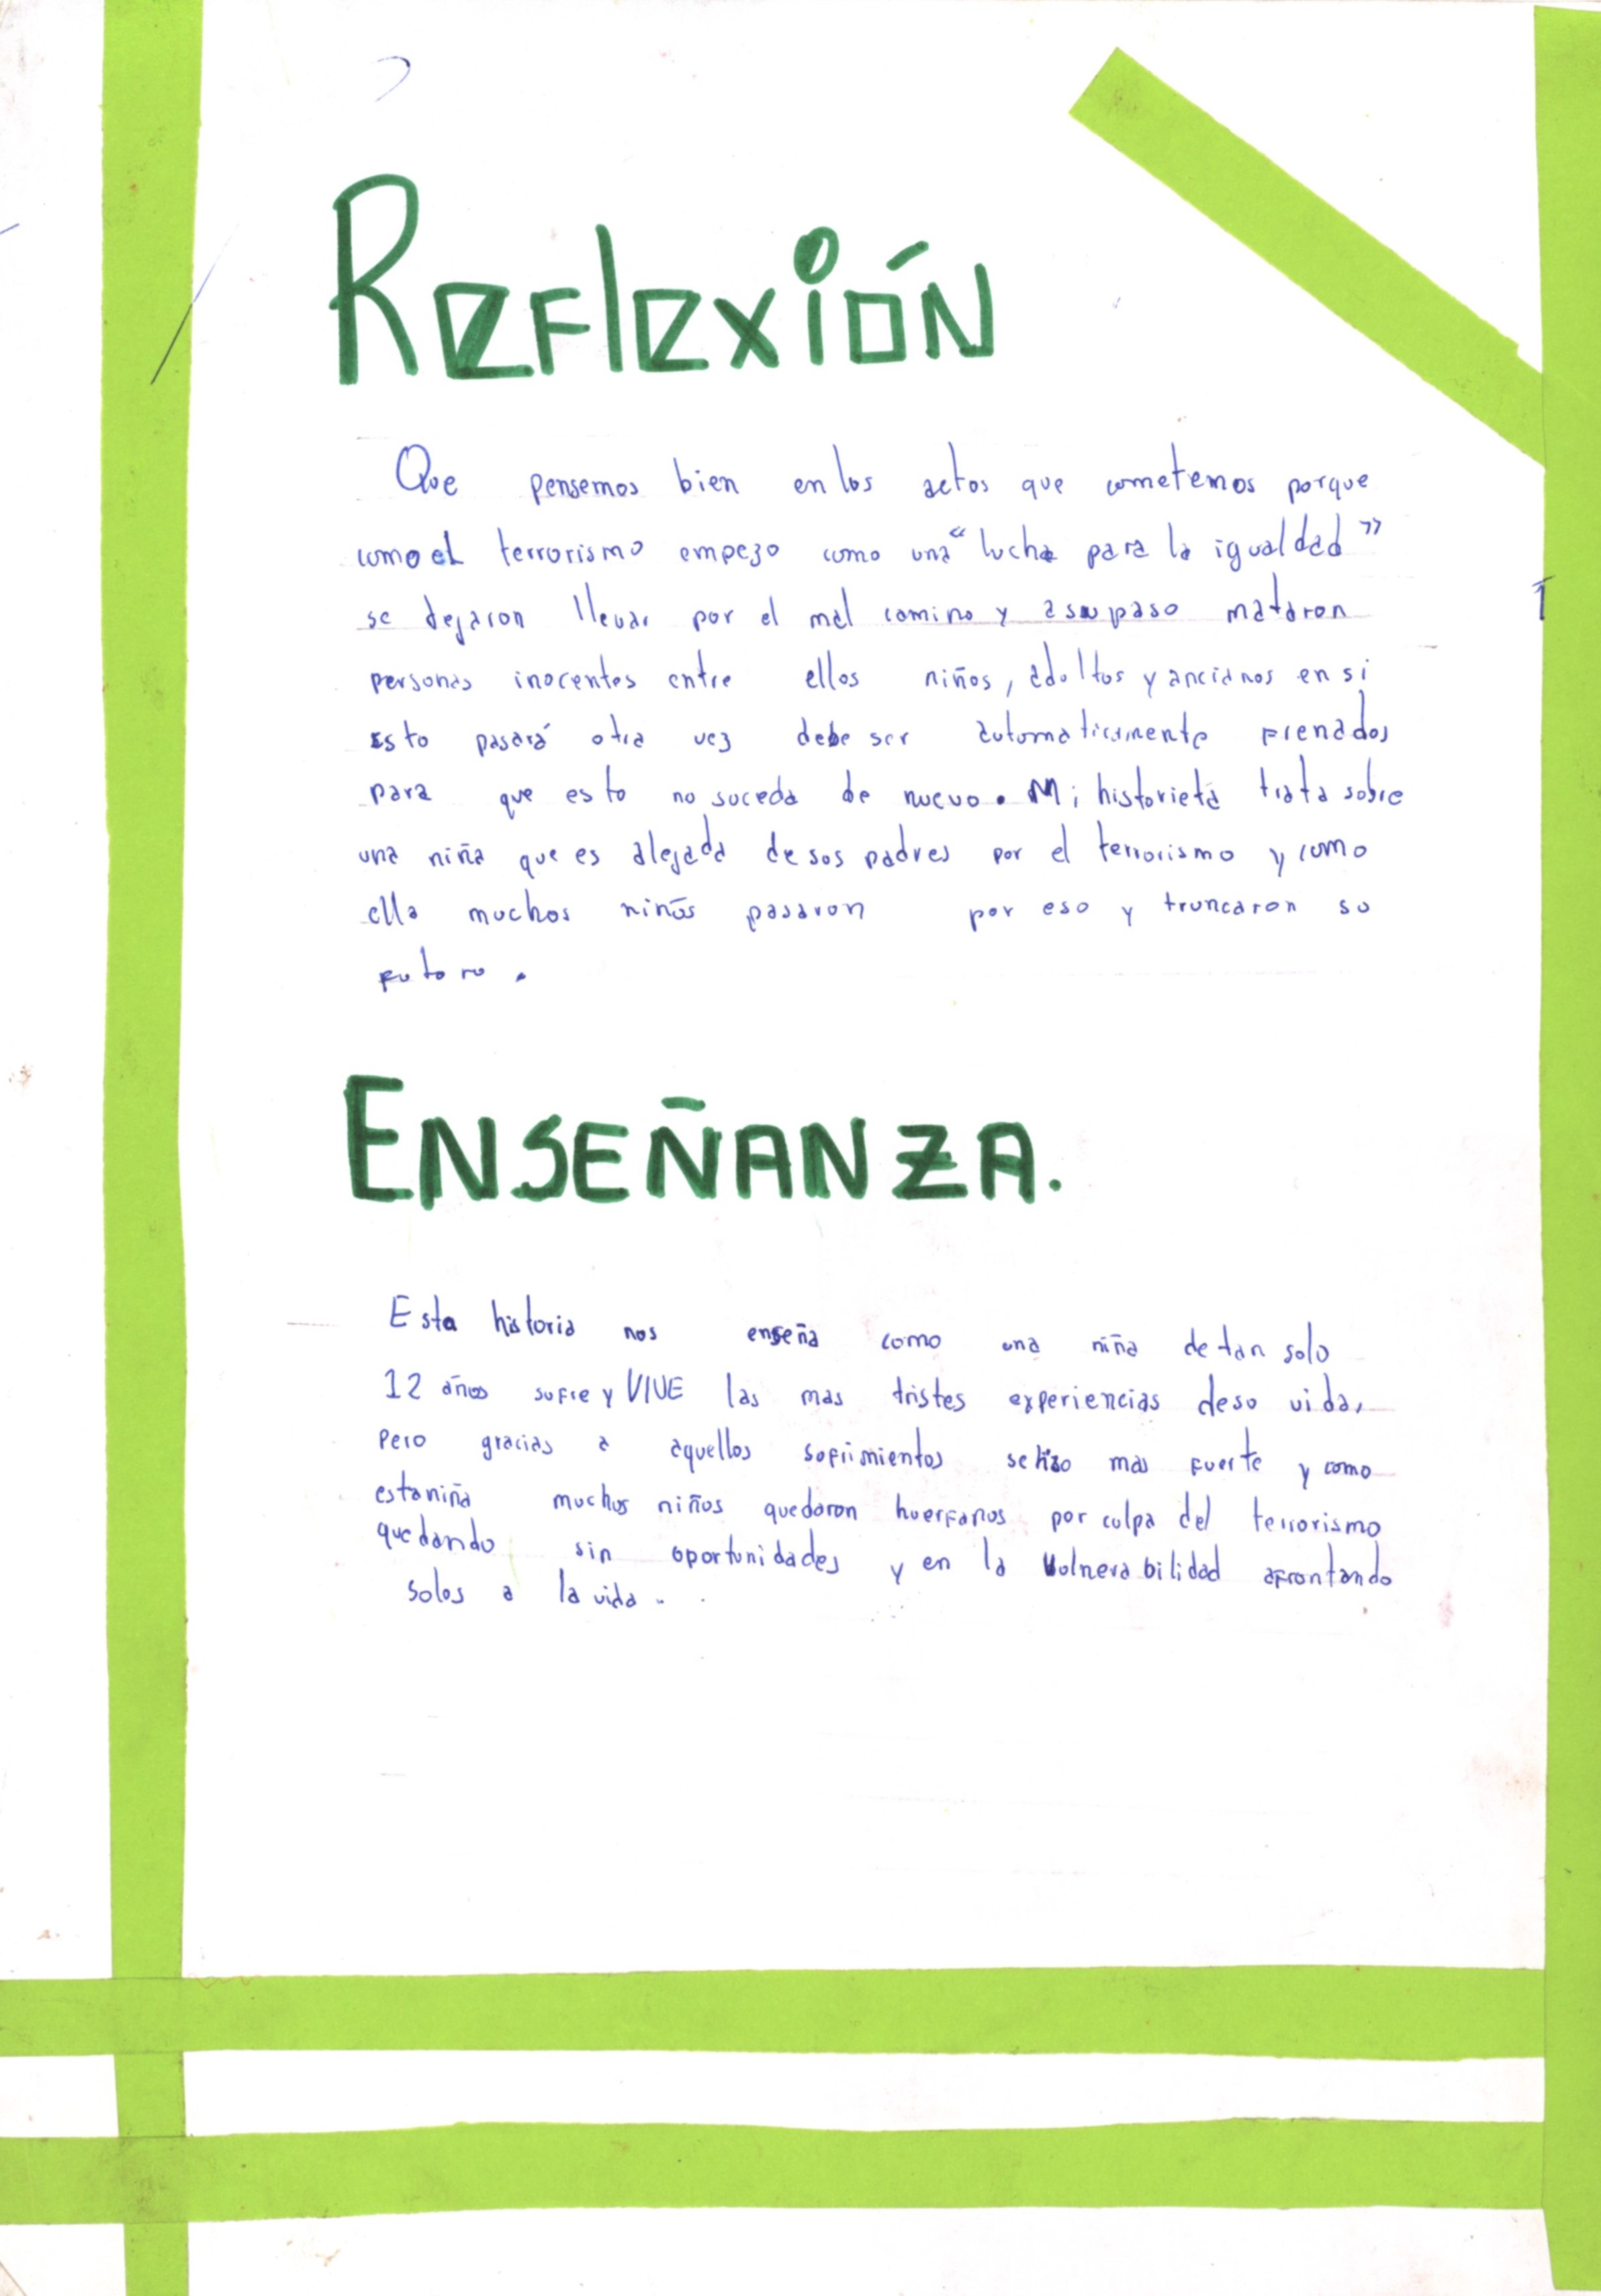 Reflexión
Que pensemos bien en los actos que cometemos porque
como el terrorismo empezo como una "lucha para la igualdad"
se dejaron llevar por el mal camino y a su paso mataron
personas inocentes entre ellos niños, adultos y ancianos en si
esto pasará otra vez debe ser automaticamente frenados
para que esto no suceda de nuevo. Mi historieta trata sobre
una niña que es alejada de sus padres por el terrorismo y como
ella muchos niños pasaron por eso y truncaron su
futuro.
ENSEÑANZA.
Esta historia nos enseña como una niña de tan solo
12 años sufre y VIVE las mas tristes experiencias de su vida,
pero gracias a aquellos sufrimientos se hizo mas fuerte y como
esta niña muchos niños quedaron huerfanos por culpa del terrorismo
quedando sin oportunidades y en la vulnerabilidad afrontando
solos a la vida.